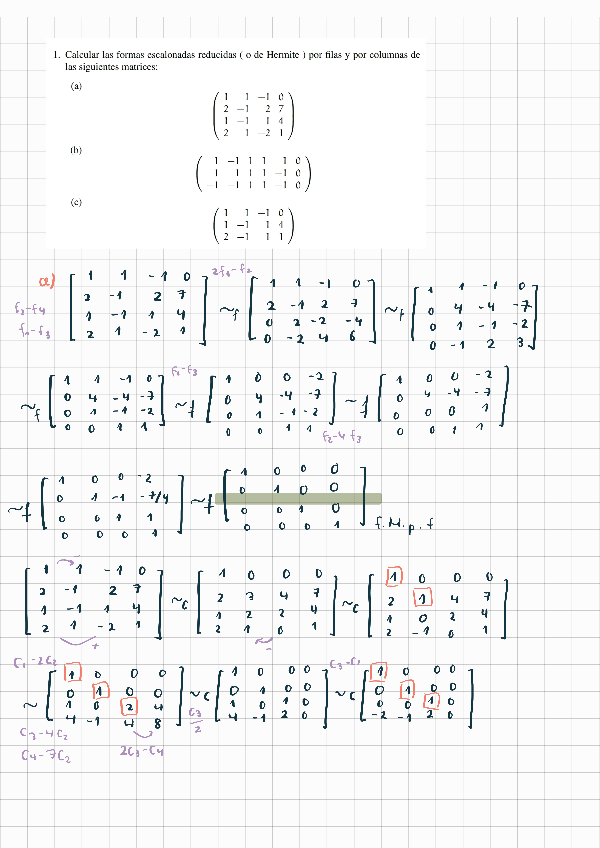 1. Calcular las formas escalonadas reducidas ( o de Hermite ) por filas y por columnas de
las siguientes matrices:
(a)
1 1 −1 0
2 −1 2 7
1 −1 1 4
2 1 −2 1
(b)
1 −1 1 1 1 0
1 1 1 1 −1 0
−1 −1 1 1 −1 0
(c)
1 1 −1 0
1 −1 1 4
2 −1 1 1
a)
f2-f4
f1-f3
1 1 -1 0
2 -1 2 7
1 -1 1 4
2 1 -2 1
2f1-f2
~f
1 1 -1 0
2 -1 2 7
0 2 -2 -4
0 -2 4 6
~f
1 1 -1 0
0 4 -4 -7
0 1 -1 -2
0 -1 2 3
~f
1 1 -1 0
0 4 -4 -7
0 1 -1 -2
0 0 1 1
f1-f3
~f
1 0 0 -2
0 4 -4 -7
0 1 -1 -2
0 0 1 1
f2-4f3
~f
1 0 0 -2
0 4 -4 -7
0 0 0 1
0 0 1 1
~f
1 0 0 -2
0 1 -1 -7/4
0 0 1 1
0 0 0 1
~f
1 0 0 0
0 1 0 0
0 0 1 0
0 0 0 1
f.H.p.f
1 1 -1 0
2 -1 2 7
1 -1 1 4
2 1 -2 1
+
~c
1 0 0 0
2 7 4 7
1 2 2 4
2 1 0 1
~c
1 0 0 0
2 1 4 7
1 0 2 4
2 -1 0 1
C1-2C2
~
1 0 0 0
0 1 0 0
1 0 2 4
4 -1 4 8
C3-4C2
C4-7C2
2C3-C4
~c
C3/2
1 0 0 0
0 1 0 0
0 0 1 0
4 -1 2 0
C3-C1
~c
1 0 0 0
0 1 0 0
0 0 1 0
-2 -1 2 0